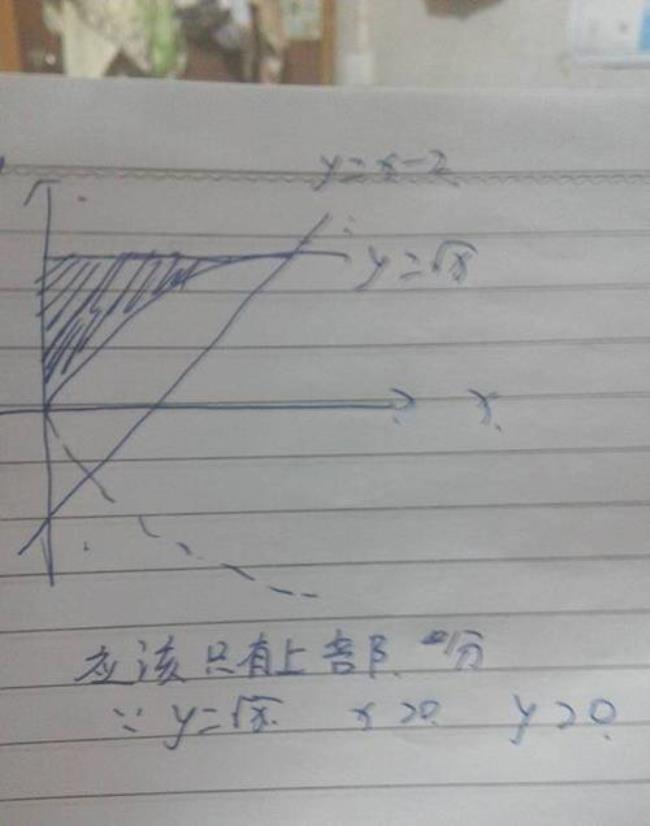 y=x-2
y=√x
x
应该只有上部分
∵ y=√x. x>0 y>0